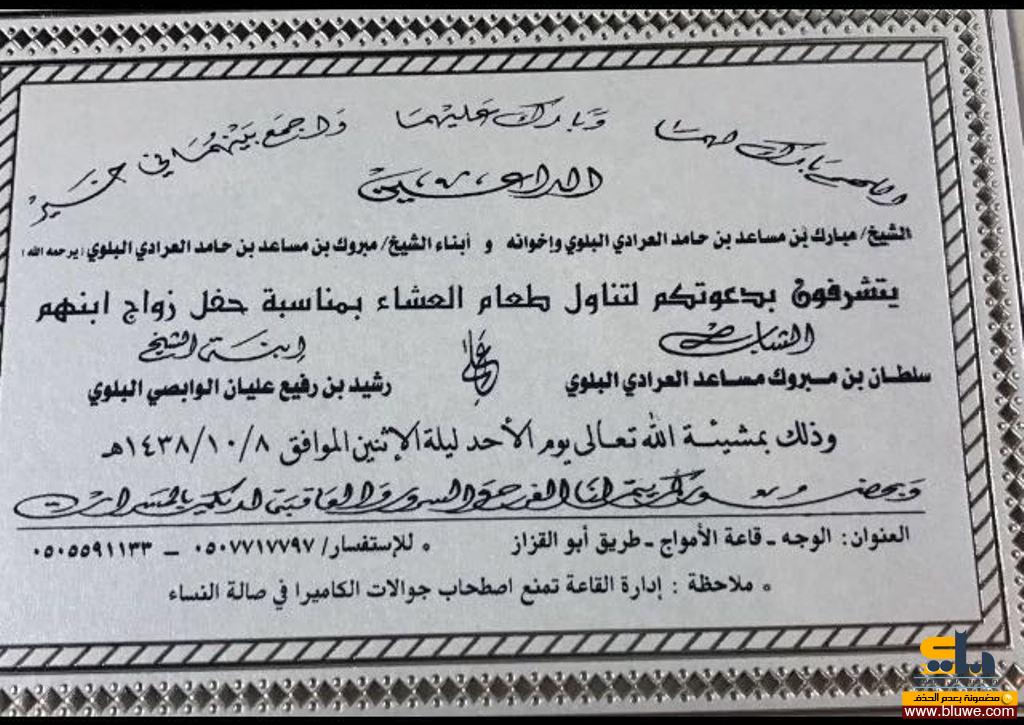 اللهم بارك لهما وبارك عليهما واجمع بينهما في خير
الداعين
الشيخ/ مبارك بن مساعد بن حامد العرادي البلوي وإخوانه و أبناء الشيخ/ مبروك بن مساعد بن حامد العرادي البلوي (يرحمه الله)
يتشرفون بدعوتكم لتناول طعام العشاء بمناسبة حفل زواج ابنهم
الشاب على إبنة الشيخ
سلطان بن مبروك مساعد العرادي البلوي رشيد بن رفيع عليان الوابصي البلوي
وذلك بمشيئة الله تعالى يوم الأحد ليلة الإثنين الموافق ١٤٣٨/١٠/٨هـ
وبحضوركم يتم لنا الفرح والسرور والعاقبة لديكم بالمسرات
العنوان: الوجه - قاعة الأمواج - طريق أبو القزاز • للإستفسار/ ٠٥٠٧٧١٧٧٩٧ - ٠٥٠٥٥٩١١٣٣
• ملاحظة : إدارة القاعة تمنع اصطحاب جوالات الكاميرا في صالة النساء
بلوي
مضمونة بعدم الحذف
www.bluwe.com